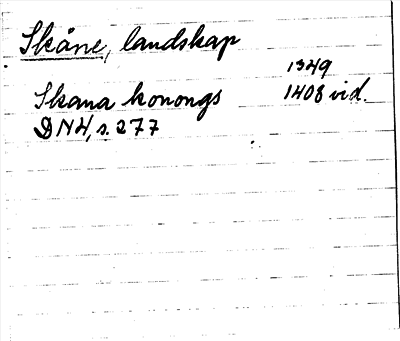 Skåne, landskap
1349
Skana konongs 1408 vid.
DN4, s. 277